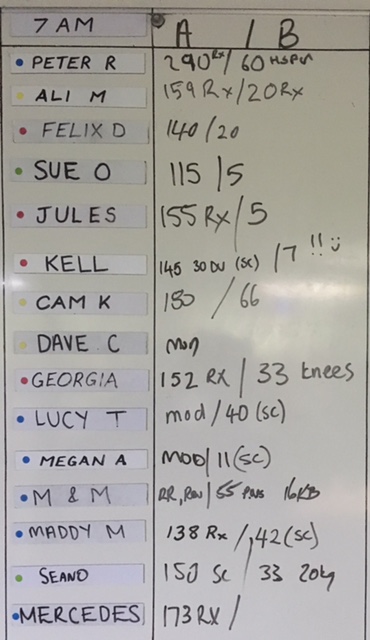 7 AM A / B
PETER R 290 Rx / 60 HSPU
ALI M 159 Rx / 20 Rx
FELIX D 140 / 20
SUE O 115 / 5
JULES 155 Rx / 5
KELL 145 30 DU (SC) / 7 !!
CAM K 150 / 66
DAVE C
GEORGIA 152 RX / 33 knees
LUCY T mod / 40 (SC)
MEGAN A MOD / 11 (SC)
M & M RR, Row / 55 16KB
MADDY M 138 Rx / 42 (SC)
SEANO 150 SC / 33 20kg
MERCEDES 173 RX /